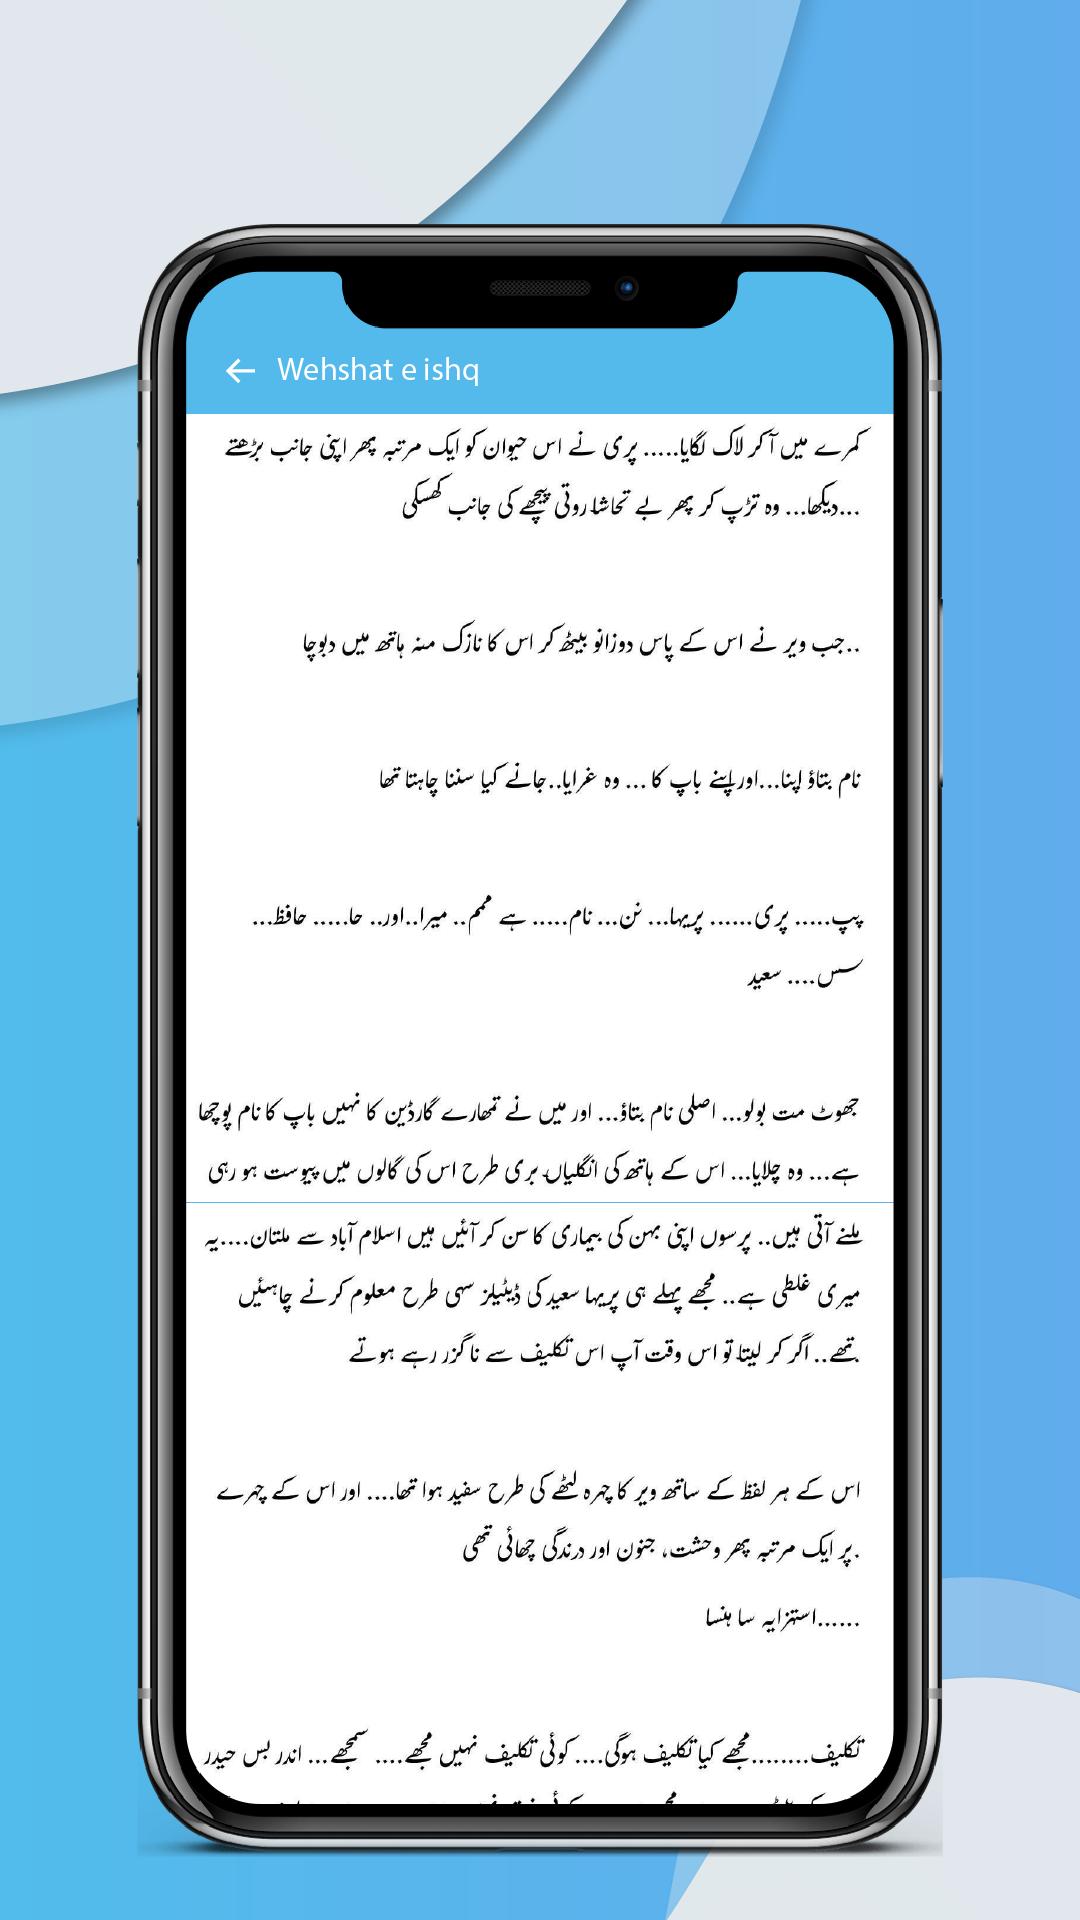 Wehshat e ishq
کمرے میں آ کر لاک لگایا..... پری نے اس حیوان کو ایک مرتبہ پھر اپنی جانب بڑھتے
...دیکھا... وہ تڑپ کر پھر بے تحاشا روتی پیچھے کی جانب کھسکی
..جب ویر نے اس کے پاس دوزانو بیٹھ کر اس کا نازک منہ ہاتھ میں دبوچا
نام بتاؤ اپنا...اور اپنے باپ کا ... وہ غرایا..جانے کیا سننا چاہتا تھا
پپ..... پری...... پریہا... نن... نام..... ہے ممم.. میرا..اور.. حا..... حافظ...
سس.... سعید
جھوٹ مت بولو... اصلی نام بتاؤ... اور میں نے تمھارے گارڈین کا نہیں باپ کا نام پوچھا
ہے... وہ چلایا... اس کے ہاتھ کی انگلیاں بری طرح اس کی گالوں میں پیوست ہو رہی
ملنے آتی ہیں.. پرسوں اپنی بہن کی بیماری کا سن کر آئیں ہیں اسلام آباد سے ملتان....یہ
میری غلطی ہے.. مجھے پہلے ہی پریہا سعید کی ڈیٹیلز سہی طرح معلوم کرنے چاہئیں
تھے.. اگر کر لیتا تو اس وقت آپ اس تکلیف سے نا گزر رہے ہوتے
اس کے ہر لفظ کے ساتھ ویر کا چہرہ لٹھے کی طرح سفید ہوا تھا.... اور اس کے چہرے
.پر ایک مرتبہ پھر وحشت، جنون اور درندگی چھائی تھی
......استہزایہ سا ہنسا
تکلیف........مجھے کیا تکلیف ہوگی.... کوئی تکلیف نہیں مجھے.... سمجھے... اندر بس حیدر